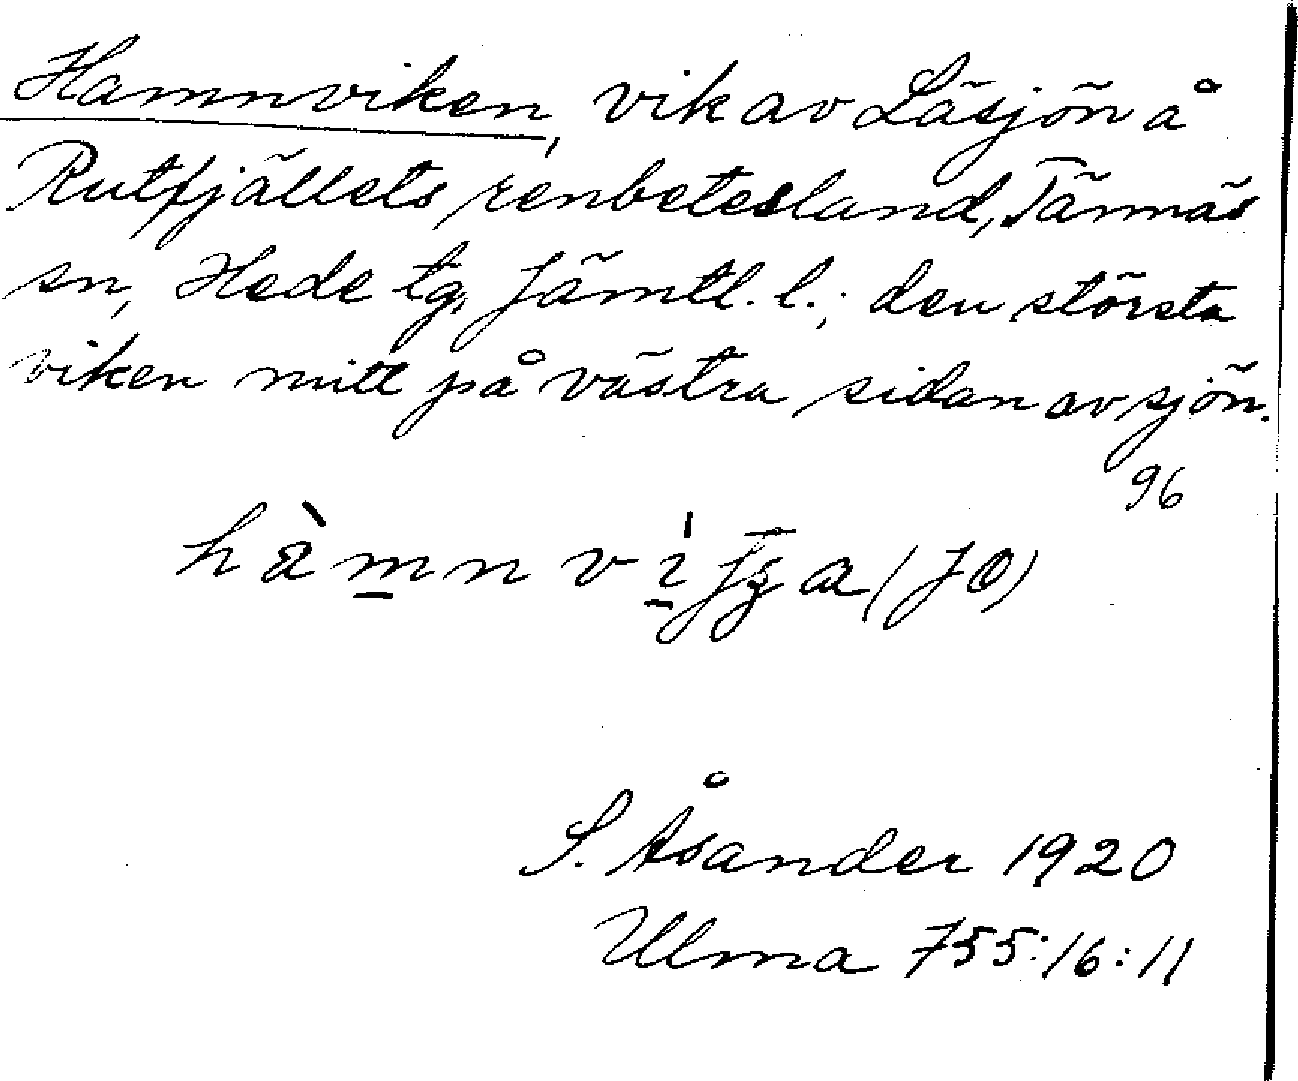 Hamnviken, vik av Läsjön å
Rutfjällets renbetesland, Tännäs
sn, Hede tg, Jämtl. l.; den största
viken mitt på västra sidan av sjön.
96
(JO)
S. Åsander 1920
Ulma 755:16:11